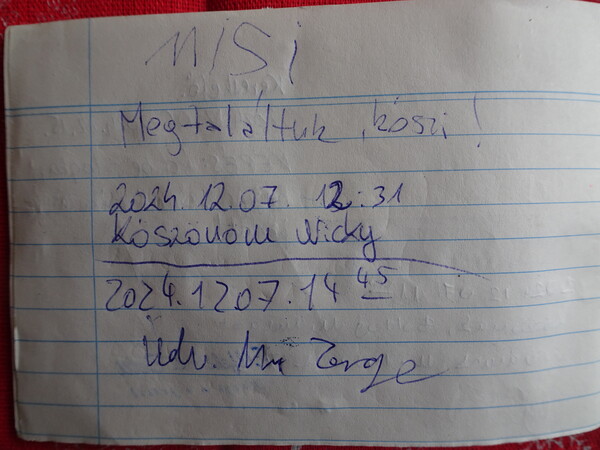 MISI
Megtaláltuk, köszi!
2024.12.07. 12:31
Köszönöm Nicky
2024.1207.14 45
Üdv.